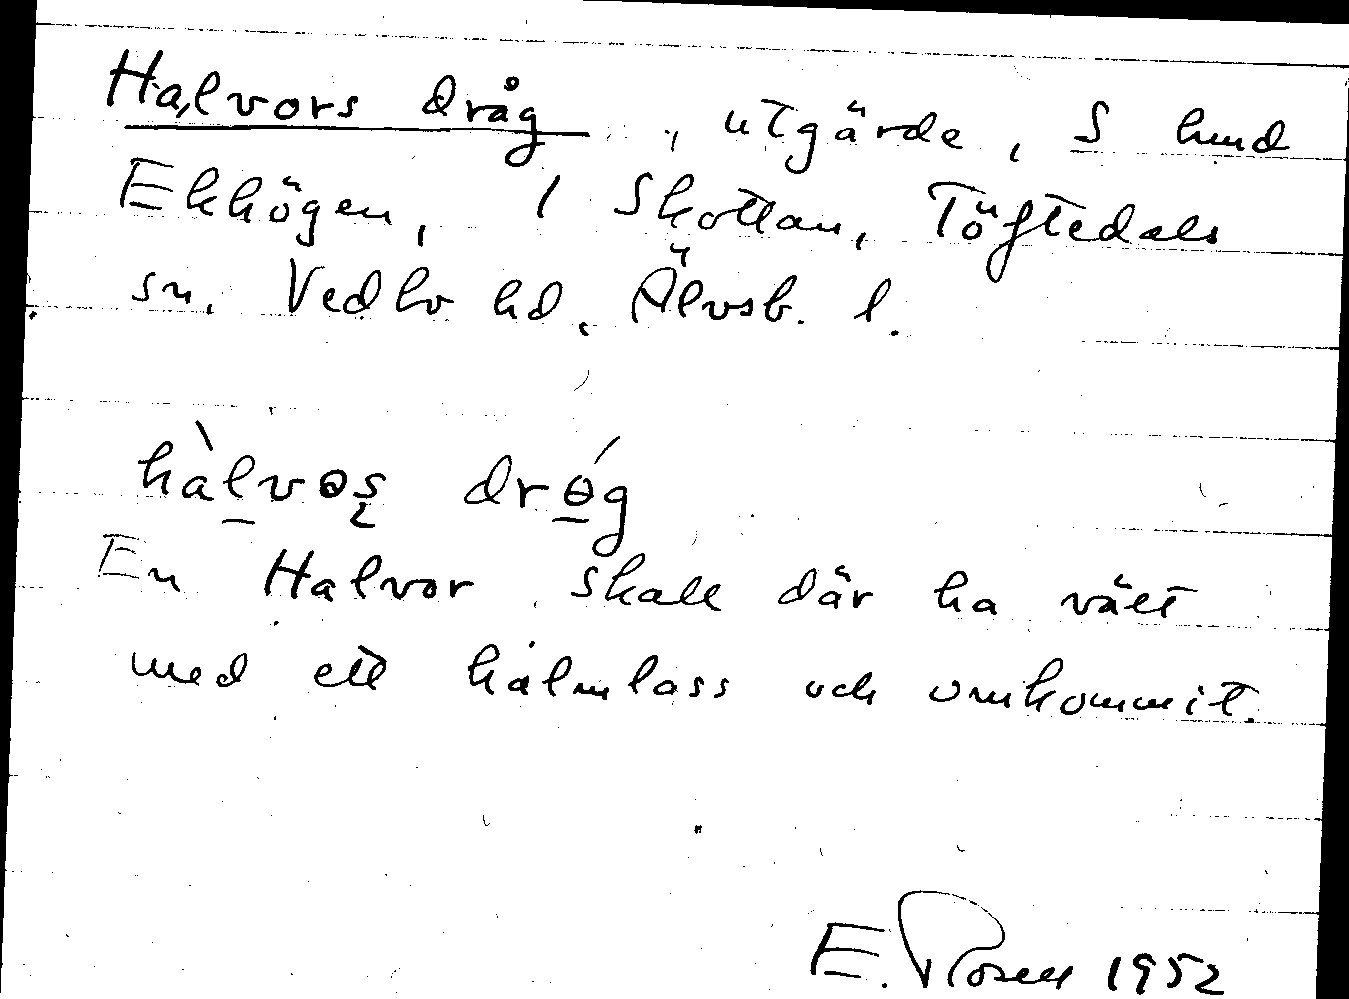 Halvors dråg, utgärde, S hund
Ekhögen, 1 Skottan, Töftedals
sn. Vedbo hd, Älvsb. l.
hàlvos̨ drɵ́g
En Halvor skall där ha vält
med ett halmlass och omkommit.
E. Rosell 1952